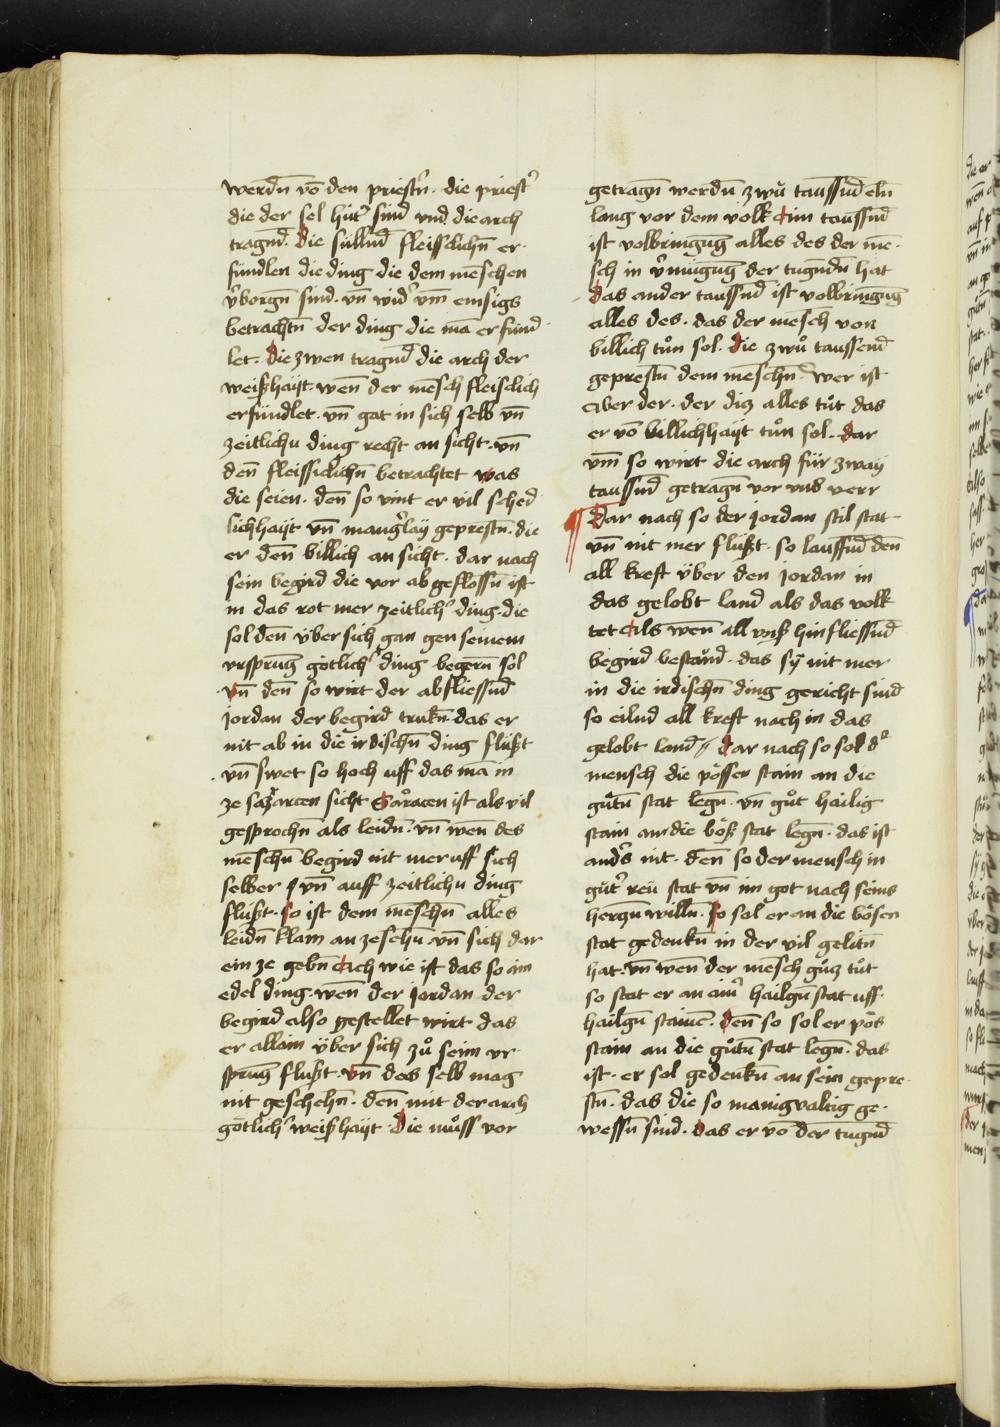 werdn̄ vō den priestn̄ · die priest
die der sel hüt͛ sind vnd die arch
tragnd̄ · Die süllnd̄ fleissclichn̄ er·
fündlen die ding die dem menschen
v͛borgn̄ sind · vn̄ wid͛ vm̄ emsigs
betrachtn̄ der ding die mā erfünd
let · Die zwen tragnd̄ die arch der
weißhayt · wen̄ der mēsch fleisclich
erfündlet · vn̄ gat in sich selb vn̄
zeitlichu ding recht an sicht · vn̄
den̄ fleissiclichn̄ betrachtet was
die seien · den̄ so vint er vil sched
lichhayt vn̄ mang͛lay geprestn̄ · die
er den̄ billich an sicht · dar nach
sein begird die vor ab geflossn̄ ist
in das rot mer zeitlich͛ ding · die
sol den̄ über sich gan gen seinem
vrsprung götlich͛ ding begern̄ sol
vn̄ den̄ so wirt der abfliessnd̄
jordan der begird trukn̄ · das er
nit ab in die irdischn̄ ding flüßt
vn̄ swet so hoch uff das mā in
ze sarcen sicht Saracen ist als vil
gesprochn̄ als leidn̄ · vn̄ wen̄ des
mēschn̄ begird nit mer uff sich
selber vn̄ auff zeitlichu ding
flüßt · so ist dem mēschn̄ alles
leidn̄ klain an zesehn̄ · vn̄ sich dar
ein ze gebn̄ Ach wie ist das so ain
edel ding · wen̄ der jordan der
begird also gestellet wirt das
er allain über sich zů seim vr·
sprung flüßt · vn̄ des selb mag
nit geschehn̄ · den̄ mit der arch
götlich͛ weißhayt · Die müss vor
getragn̄ werdn̄ zwů taussnd̄ eln̄
lang vor dem volk Ain taussnd̄
ist volbringūg alles des der mē·
sch in v͛mügūg der tugndn̄ hat
das ander taussnd̄ ist volbringūg
alles des · das der mēsch von
billich tůn sol · Die zwů taussend̄
geprestn̄ dem mēschn̄ · wer ist
Aber der · der diz alles tůt das
er vō billichhayt tůn sol · Dar
vm̄ so wirt die arch für zway
taussnd̄ getragn̄ vor vns verr
Dar nach so der jordan stil stat
vn̄ nit mer flüßt · so lauffnd̄ den̄
all kreft über den jordan in
das gelobt land als das volk
tet Als wen̄ all vnß hinfliessnd̄
begird bestand̄ · das sÿ nit mer
in die irdischn̄ ding gericht sind
so eilnd all kreft nach in das
gelobt land // Dar nach so sol d͛
mensch die pössen stain an die
gůtn̄ stat legn̄ · vn̄ gůt hailig
stain an die böß stat legn̄ · das ist
and͛s nit · den̄ so der mensch in
gůt͛ reü stat vn̄ im got nach seins
hergn̄ willn̄ · so sol er an die bösen
stat gedenkn̄ in der vil gelitn̄
hat · vn̄ wen̄ der mēsch gůz tůt
so stat er an aim͛ hailgn̄ stat uff
hailgn̄ stainē · den̄ so sol er pös
stain an die gůtn̄ stat legn̄ · das
ist · er sol gedenkn̄ an sein gepre
stn̄ · das die so manigvaltig ge·
wessn̄ sind · das er vō der tugnd̄